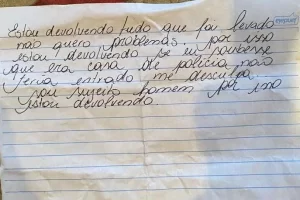 Estou devolvendo tudo que foi levado
não quero problemas. por isso
estou devolvendo se eu soubesse
que era casa de policia não
teria entrado me desculpa
sou sujeito homem por isso
estou devolvendo.